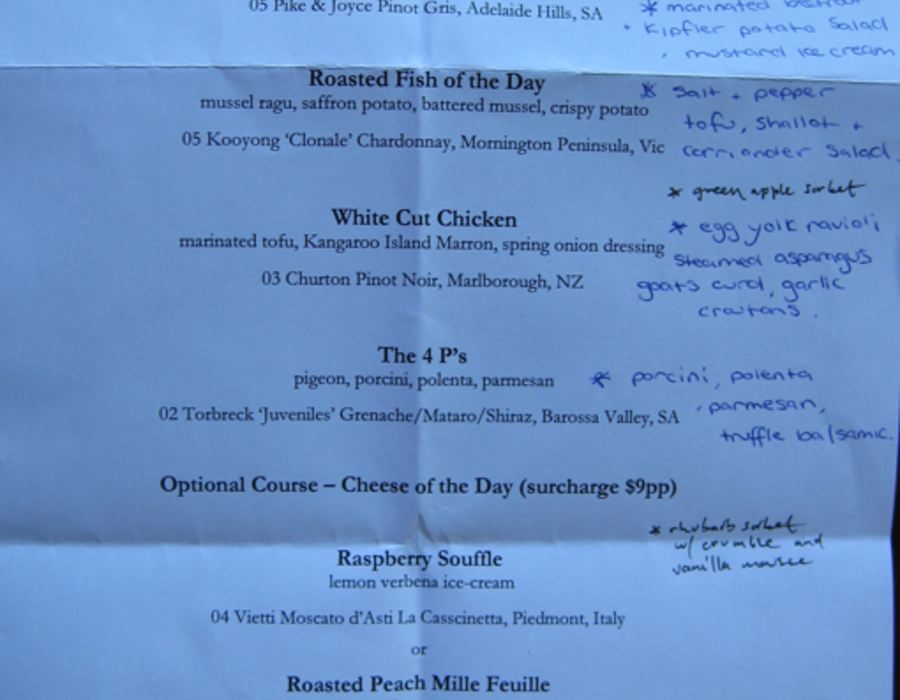 05 Pike & Joyce Pinot Gris, Adelaide Hills, SA
* marinated
+ Kipfler potato Salad
, mustard ice cream
Roasted Fish of the Day
mussel ragu, saffron potato, battered mussel, crispy potato
05 Kooyong ‘Clonale’ Chardonnay, Mornington Peninsula, Vic
* Salt + pepper
tofu, shallot +
corriander Salad.
* green apple sorbet
White Cut Chicken
marinated tofu, Kangaroo Island Marron, spring onion dressing
03 Churton Pinot Noir, Marlborough, NZ
* egg yolk ravioli
steamed asparagus
goats curd, garlic
croutons.
The 4 P's
pigeon, porcini, polenta, parmesan
02 Torbreck ‘Juveniles’ Grenache/Mataro/Shiraz, Barossa Valley, SA
* porcini, polenta
, parmesan,
truffle balsamic.
Optional Course – Cheese of the Day (surcharge $9pp)
* rhubarb sorbet
w/ crumble and
vanilla
Raspberry Souffle
lemon verbena ice-cream
04 Vietti Moscato d’Asti La Casscinetta, Piedmont, Italy
or
Roasted Peach Mille Feuille